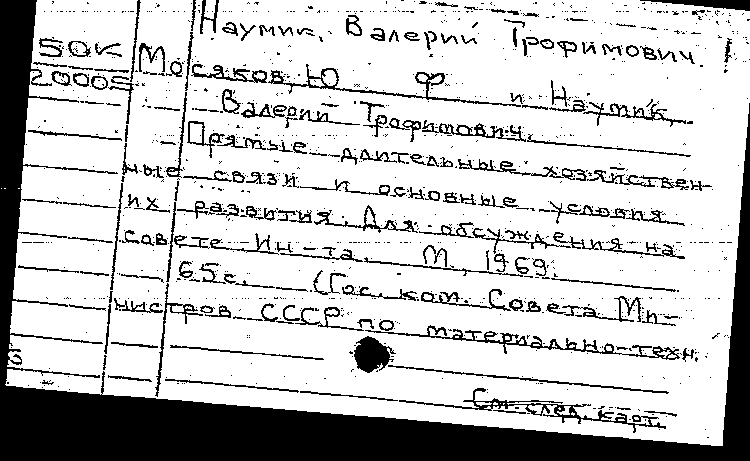 Наумик, Валерий Трофимович.
50К Мосяков, Ю Ф и Наумик,
20005 Валерий Трофимович.
Прямые длительные хозяйствен-
ные связи и основные условия
их развития. Для обсуждения на
совете Ин-та. М, 1969.
65с. (Гос. ком. Совета Ми-
нистров СССР по материально-техн.
3
См. след. карт.